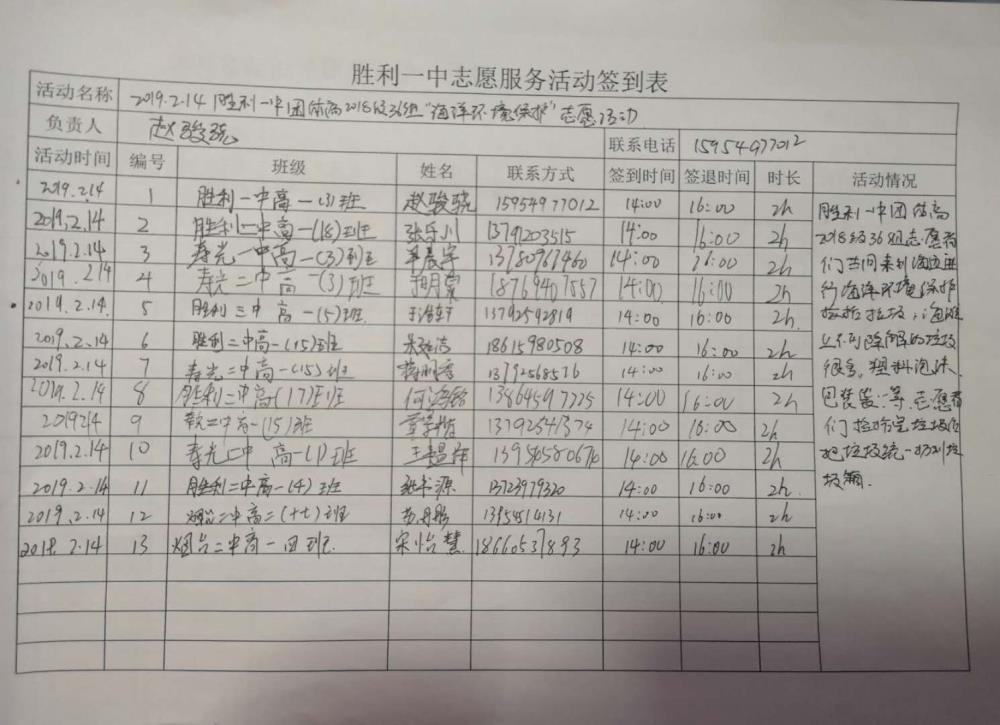 胜利一中志愿服务活动签到表
活动名称 2019.2.14 胜利一中团体高2018级36组"海洋环境保护"志愿活动
负责人 赵骏骁 联系电话 15954977012
活动时间 编号 班级 姓名 联系方式 签到时间 签退时间 时长 活动情况
2019.2.14 1 胜利一中高一(3)班 赵骏骁 15954977012 14:00 16:00 2h
2019.2.14 2 胜利一中高一(18)班 张乐川 13791203515 14:00 16:00 2h
2019.2.14 3 寿光一中高一(3)班 晨宇 13780967460 14:00 16:00 2h
2019.2.14 4 寿光二中高一(3)班 18769407557 14:00 16:00 2h
2019.2.14. 5 胜利二中高一(5)班 13792592819 14:00 16:00 2h
2019.2.14 6 胜利二中高一(15)班 18615980508 14:00 16:00 2h
2019.2.14 7 寿光二中高一(15)班 13792568576 14:00 16:00 2h
2019.2.14 8 胜利二中高一(17)班 13864597725 14:00 16:00 2h
2019214 9 二中高一(15)班 13792541374 14:00 16:00 2h
2019.2.14 10 寿光二中高一(1)班 王 13956580670 14:00 16:00 2h
2019.2.14 11 胜利二中高一(4)班 源 13723979320 14:00 16:00 2h
2019.2.14 12 烟台二中高二(十七)班 13954514131 14:00 16:00 2h
2018.2.14 13 烟台二中高一四班 宋怡慧 18660537893 14:00 16:00 2h
胜利一中团体高
2018级36组志愿者
们共同来到海边进
行海洋环境保护
捡拾垃圾,海滩
上不可降解的垃圾
很多,塑料泡沫、
包装袋等,志愿者
们捡拾完垃圾后
把垃圾统一扔到垃
圾箱.